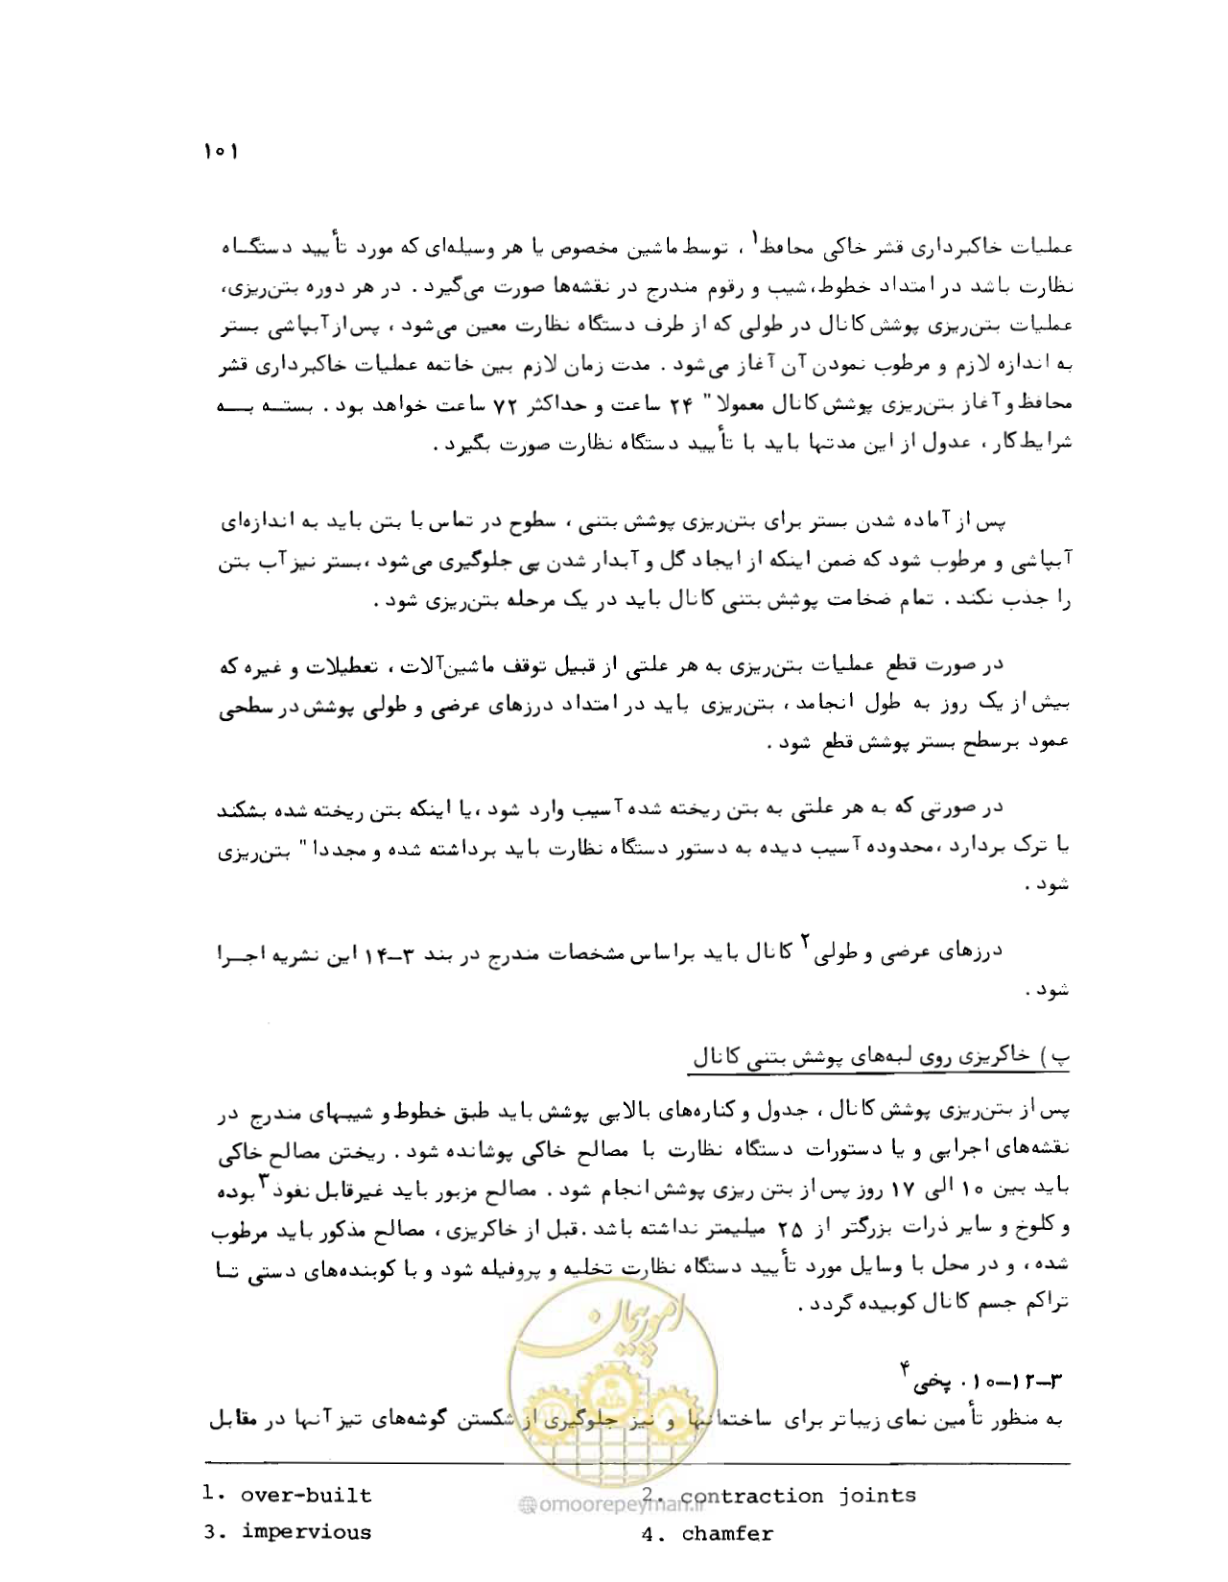 ۱۰۱
عملیات خاکبرداری قشر خاکی محافظ۱ ، توسط ماشین مخصوص یا هر وسیله‌ای که مورد تأیید دستگـاه
نظارت باشد در امتداد خطوط، شیب و رقوم مندرج در نقشه‌ها صورت می‌گیرد . در هر دوره بتن‌ریزی،
عملیات بتن‌ریزی پوشش کانال در طولی که از طرف دستگاه نظارت معین می‌شود ، پس از آبپاشی بستر
به اندازه لازم و مرطوب نمودن آن آغاز می‌شود . مدت زمان لازم بین خاتمه عملیات خاکبرداری قشر
محافظ و آغاز بتن‌ریزی پوشش کانال معمولا" ۲۴ ساعت و حداکثر ۷۲ ساعت خواهد بود . بستـه بـــه
شرایط کار ، عدول از این مدتها باید با تأیید دستگاه نظارت صورت بگیرد .
پس از آماده شدن بستر برای بتن‌ریزی پوشش بتنی ، سطوح در تماس با بتن باید به اندازه‌ای
آبپاشی و مرطوب شود که ضمن اینکه از ایجاد گل و آبدار شدن پی جلوگیری می‌شود ،بستر نیز آب بتن
را جذب نکند . تمام ضخامت پوشش بتنی کانال باید در یک مرحله بتن‌ریزی شود .
در صورت قطع عملیات بتن‌ریزی به هر علتی از قبیل توقف ماشین‌آلات ، تعطیلات و غیره که
بیش از یک روز به طول انجامد ، بتن‌ریزی باید در امتداد درزهای عرضی و طولی پوشش در سطحی
عمود برسطح بستر پوشش قطع شود .
در صورتی که به هر علتی به بتن ریخته شده آسیب وارد شود ،یا اینکه بتن ریخته شده بشکند
یا ترک بردارد ،محدوده آسیب دیده به دستور دستگاه نظارت باید برداشته شده و مجددا" بتن‌ریزی
شود .
درزهای عرضی و طولی۲ کانال باید براساس مشخصات مندرج در بند ۳–۱۴ این نشریه اجـرا
شود .
پ) خاکریزی روی لبه‌های پوشش بتنی کانال
پس از بتن‌ریزی پوشش کانال ، جدول و کناره‌های بالایی پوشش باید طبق خطوط و شیبهای مندرج در
نقشه‌های اجرایی و یا دستورات دستگاه نظارت با مصالح خاکی پوشانده شود . ریختن مصالح خاکی
باید بین ۱۰ الی ۱۷ روز پس از بتن ریزی پوشش انجام شود . مصالح مزبور باید غیرقابل نفوذ۳ بوده
و کلوخ و سایر ذرات بزرگتر از ۲۵ میلیمتر نداشته باشد .قبل از خاکریزی ، مصالح مذکور باید مرطوب
شده ، و در محل با وسایل مورد تأیید دستگاه نظارت تخلیه و پروفیله شود و با کوبنده‌های دستی تـا
تراکم جسم کانال کوبیده گردد .
۳–۱۲–۱۰ . پخی۴
به منظور تأمین نمای زیباتر برای ساختمانها و نیز جلوگیری از شکستن گوشه‌های تیز آنها در مقابل
امور پیمان
1. over-built 2. contraction joints
@omoorepeyman.ir
3. impervious 4. chamfer